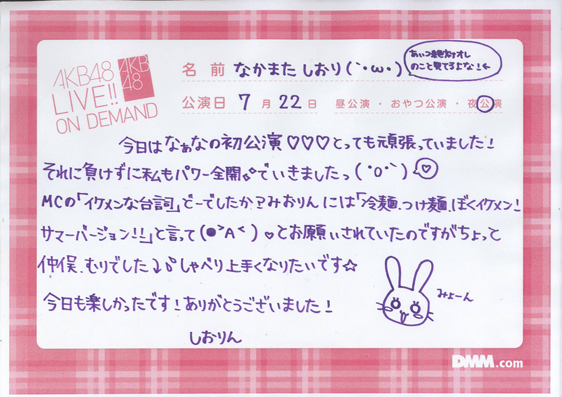 AKB48
LIVE!!
ON DEMAND
AKB
48
名前 なかまた しおり(｀・ω・´)
のこと見てるよな!←
公演日 7月22日 昼公演・おやつ公演・夜公演
今日はなぁなの初公演♡♡♡とっても頑張っていました!
それに負けずに私もパワー全開でいきましたっ(｀0´)♡
MCの「イケメンな台詞」どーでしたか?みおりんには「冷麺、つけ麺、ぼくイケメン!
サマーバージョン!!」と言って(●>A<)♡とお願いされていたのですがちょっと
仲俣、むりでした しゃべり上手くなりたいです☆
今日も楽しかったです!ありがとうございました!
みょーん
しおりん
DMM.com